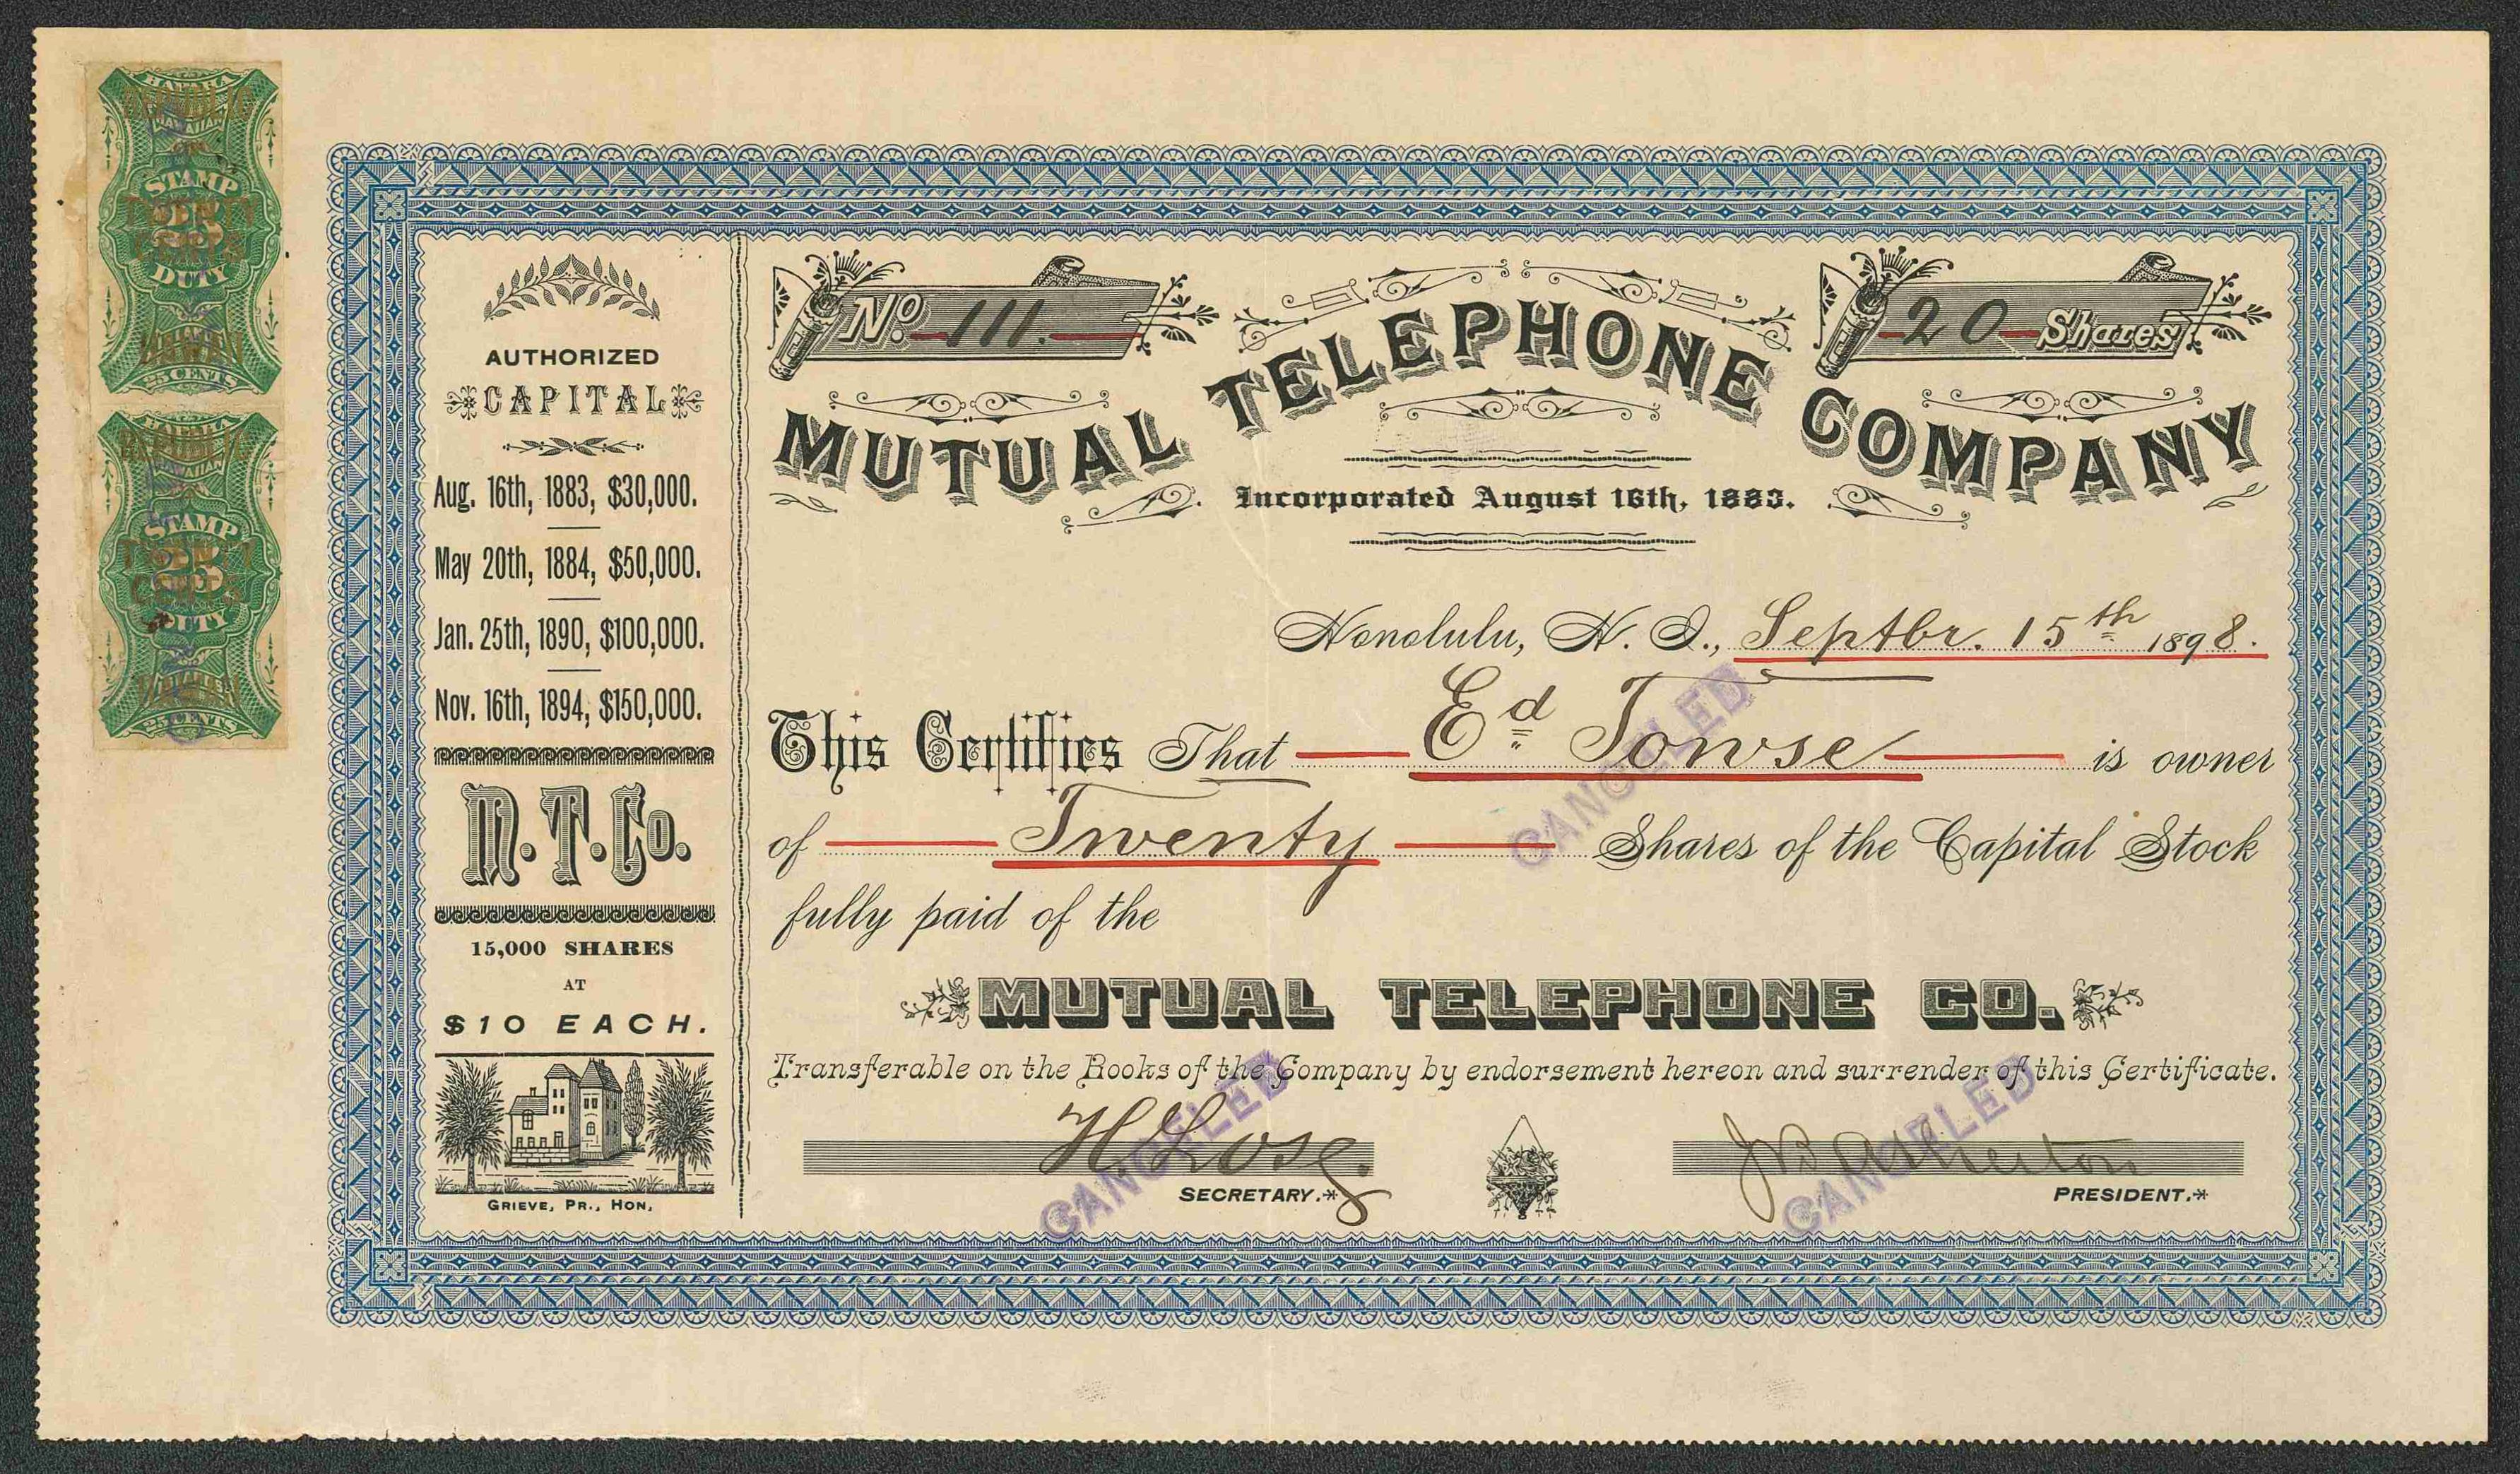 HAWAIIAN
STAMP
DUTY
HAWAII
25 CENTS
REPUBLIC
HAWAIIAN
STAMP
TWENTY
CENTS
DUTY
HAWAII
25 CENTS
AUTHORIZED
CAPITAL
Aug. 16th, 1883, $30,000.
May 20th, 1884, $50,000.
Jan. 25th, 1890, $100,000.
Nov. 16th, 1894, $150,000.
M. T. Co.
15,000 SHARES
AT
$10 EACH.
GRIEVE, PR., HON.
No. 111.
20 Shares
MUTUAL TELEPHONE COMPANY
Incorporated August 16th, 1883.
Honolulu, H. I., Septbr. 15th 1898.
This Certifies That Ed Towse is owner
of Twenty Shares of the Capital Stock
fully paid of the
MUTUAL TELEPHONE CO.
Transferable on the Books of the Company by endorsement hereon and surrender of this Certificate.
J B Atherton
SECRETARY.
PRESIDENT.
CANCELED
CANCELED
CANCELED